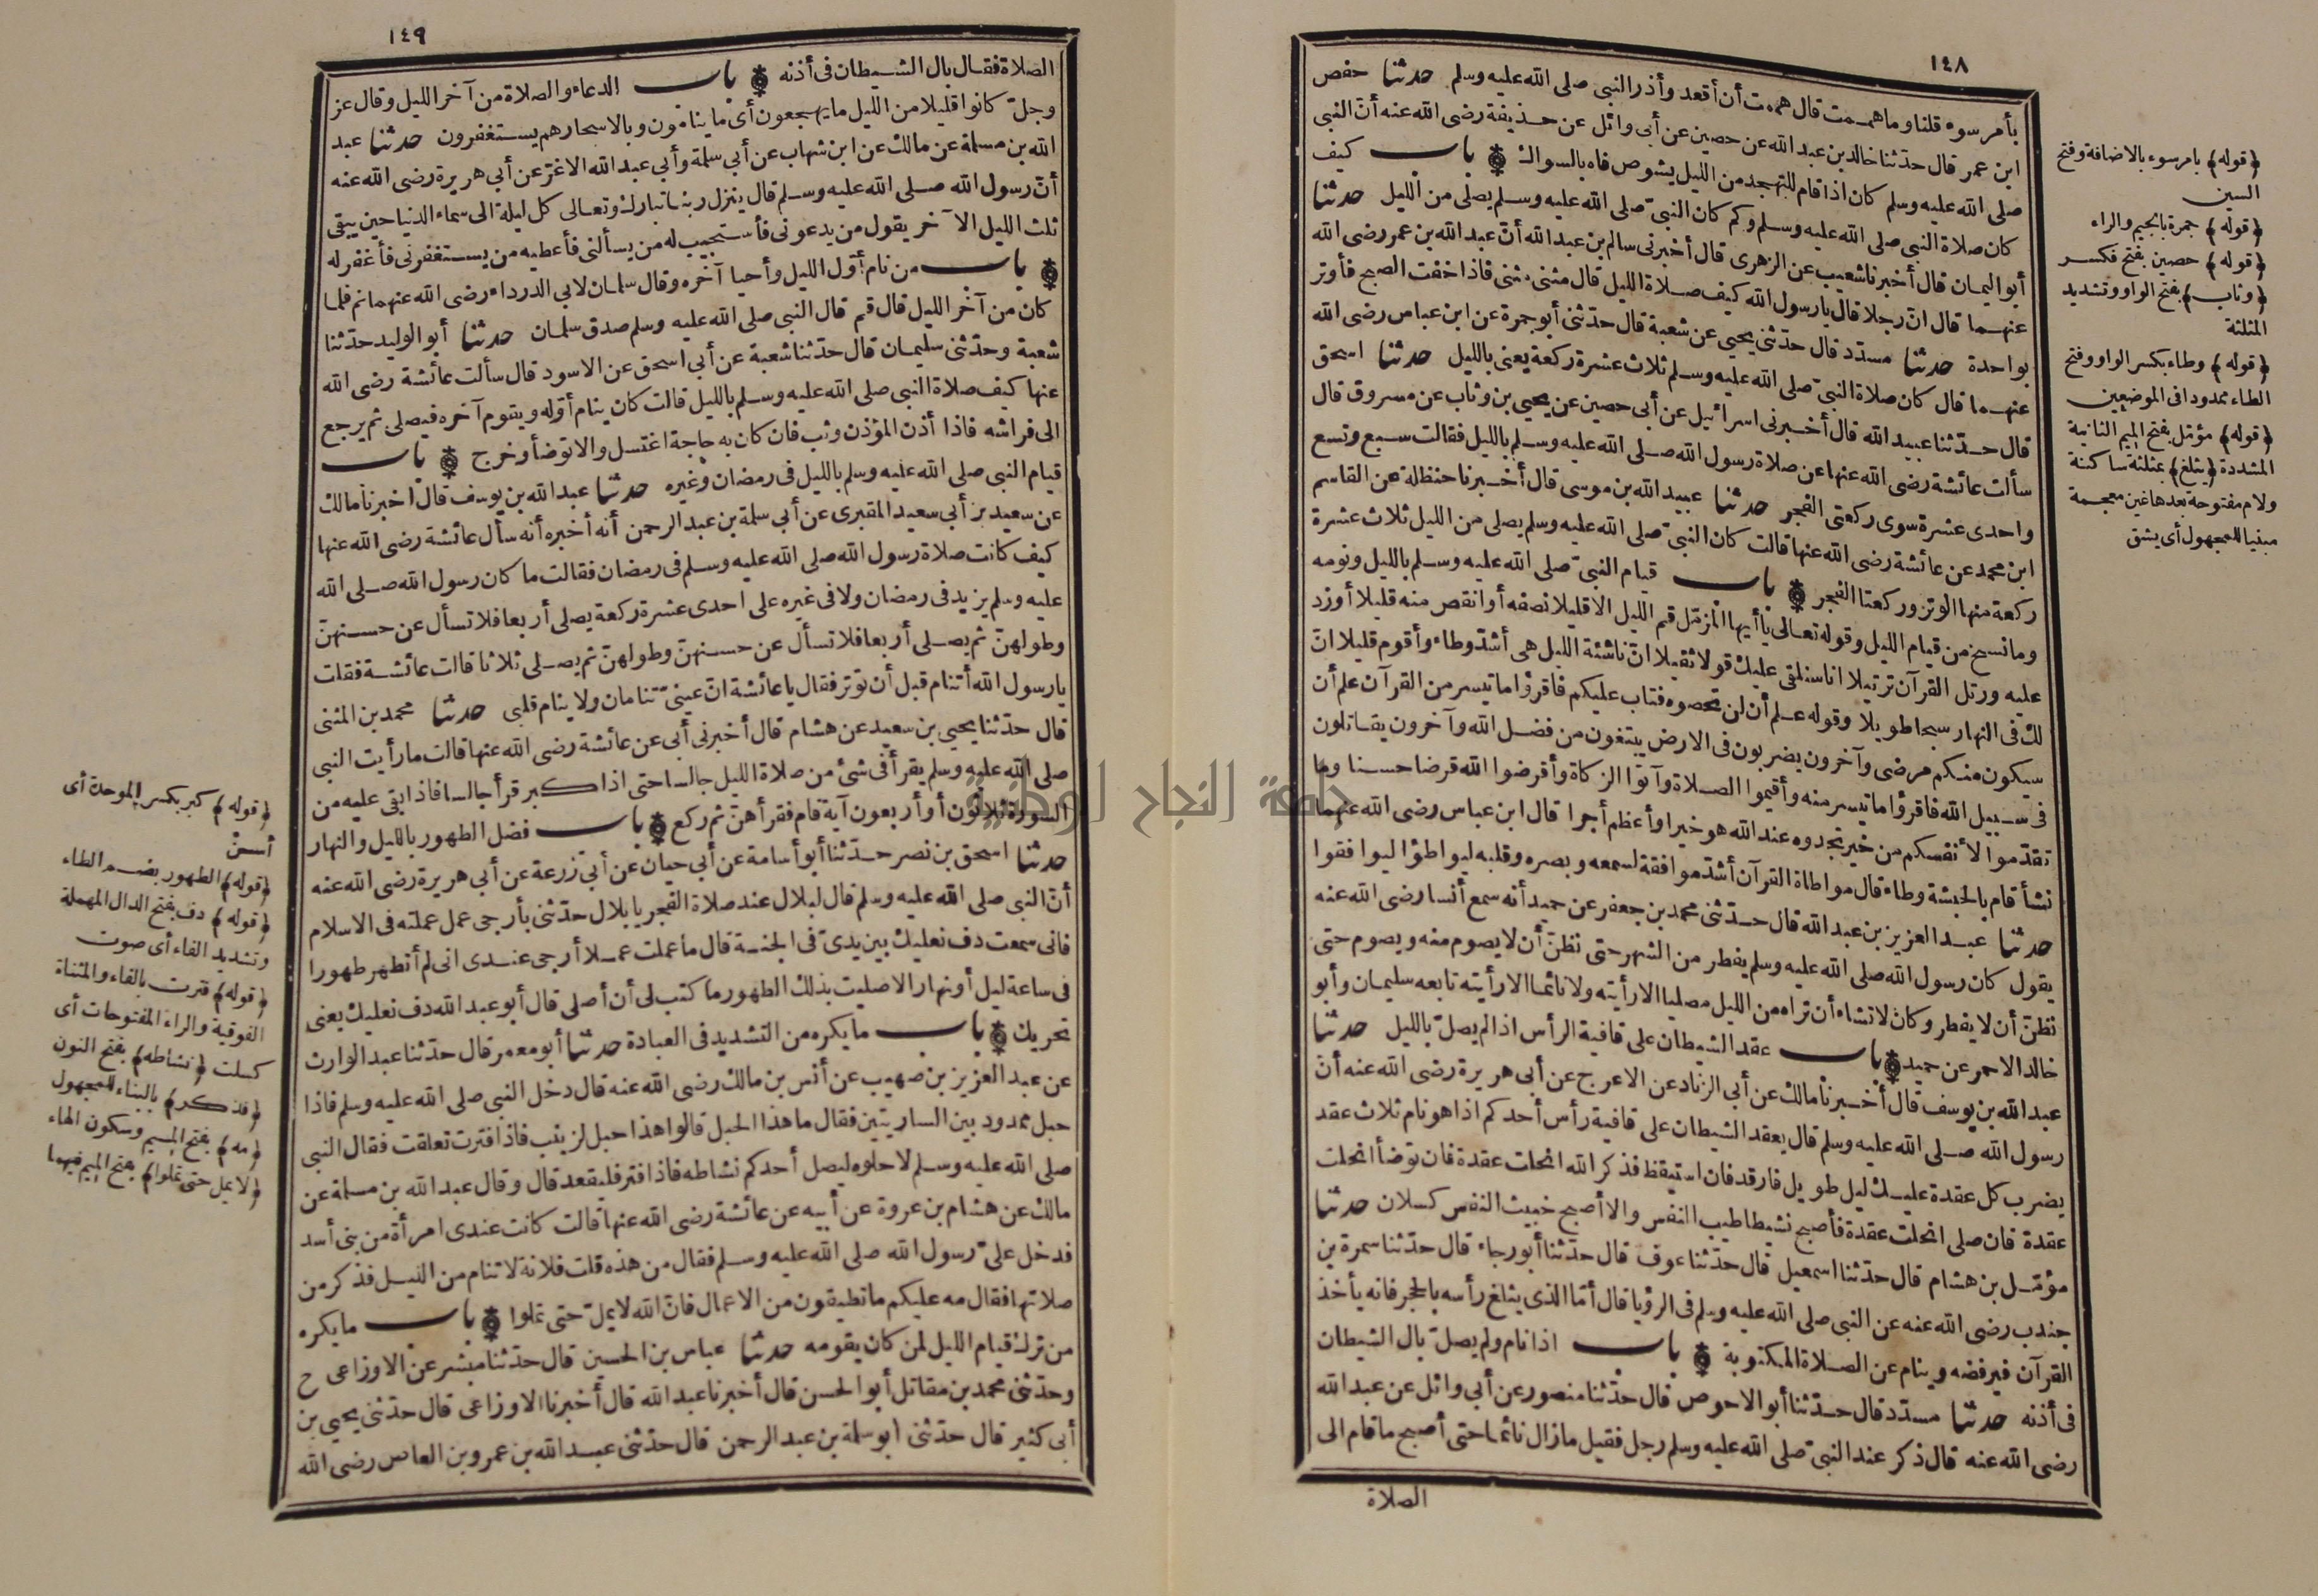 ١٤٨
بأمر سوء قلنا وما هممت قال هممت أن أقعد وأذر النبي صلى الله عليه وسلم حدثنا حفص
ابن عمر قال حدّثنا خالد بن عبد الله عن حصين عن أبي وائل عن حذيفة رضى الله عنه أنّ النبي
صلى الله عليه وسلم كان اذا قام للتهجد من الليل يشوص فاه بالسواك باب كيف
كان صلاة النبي صلى الله عليه وسلم وكم كان النبيّ صلى الله عليه وسلم يصلى من الليل حدثنا
أبو اليمان قال أخبرنا شعيب عن الزهرى قال أخبرنى سالم بن عبد الله أنّ عبد الله بن عمر رضى الله
عنهما قال انّ رجلا قال يا رسول الله كيف صلاة الليل قال مثنى مثنى فاذا خفت الصبح فأوتر
بواحدة حدثنا مسدّد قال حدّثنى يحيى عن شعبة قال حدّثنى أبو جمرة عن ابن عباس رضى الله
عنهما قال كان صلاة النبيّ صلى الله عليه وسلم ثلاث عشرة ركعة يعنى بالليل حدثنا اسحق
قال حدّثنا عبيد الله قال أخبرنى اسرائيل عن أبى حصين عن يحيى بن وثاب عن مسروق قال
سألت عائشة رضى الله عنها عن صلاة رسول الله صلى الله عليه وسلم بالليل فقالت سبع وتسع
واحدى عشرة سوى ركعتى الفجر حدثنا عبيد الله بن موسى قال أخبرنا حنظلة عن القاسم
ابن محمد عن عائشة رضى الله عنها قالت كان النبيّ صلى الله عليه وسلم يصلى من الليل ثلاث عشرة
ركعة منها الوتر وركعتا الفجر باب قيام النبيّ صلى الله عليه وسلم بالليل ونومه
وما نسخ من قيام الليل وقوله تعالى يا أيها المزمّل قم الليل الا قليلا نصفه أو انقص منه قليلا أو زد
عليه ورتل القرآن ترتيلا انا سنلقى عليك قولا ثقيلا انّ ناشئة الليل هى أشدّ وطاء وأقوم قليلا انّ
لك فى النهار سبحا طويلا وقوله علم أن لن تحصوه فتاب عليكم فاقرؤا ما تيسر من القرآن علم أن
سيكون منكم مرضى وآخرون يضربون فى الارض يبتغون من فضل الله وآخرون يقاتلون
فى سبيل الله فاقرؤا ما تيسر منه وأقيموا الصلاة وآتوا الزكاة وأقرضوا الله قرضا حسنا وما
تقدّموا لأنفسكم من خير تجدوه عند الله هو خيرا وأعظم أجرا قال ابن عباس رضى الله عنهما
نشأ قام بالحبشة وطاء قال مواطاة القرآن أشدّ موافقة لسمعه وبصره وقلبه ليواطؤا ليوافقوا
حدثنا عبد العزيز بن عبد الله قال حدّثنى محمد بن جعفر عن حميد أنه سمع أنسا رضى الله عنه
يقول كان رسول الله صلى الله عليه وسلم يفطر من الشهر حتى نظنّ أن لا يصوم منه ويصوم حتى
نظنّ أن لا يفطر وكان لا تشاء أن تراه من الليل مصليا الا رأيته ولا نائما الا رأيته تابعه سليمان وأبو
خالد الاحمر عن حميد باب عقد الشيطان على قافية الرأس اذا لم يصلّ بالليل حدثنا
عبد الله بن يوسف قال أخبرنا مالك عن أبى الزناد عن الاعرج عن أبى هريرة رضى الله عنه أنّ
رسول الله صلى الله عليه وسلم قال يعقد الشيطان على قافية رأس أحدكم اذا هو نام ثلاث عقد
يضرب كل عقدة عليك ليل طويل فارقد فان استيقظ فذكر الله انحلت عقدة فان توضأ انحلت
عقدة فان صلى انحلت عقدة فأصبح نشيطا طيب النفس والا أصبح خبيث النفس كسلان حدثنا
مؤمّل بن هشام قال حدّثنا اسمعيل قال حدّثنا عوف قال حدّثنا أبو رجاء قال حدّثنا سمرة بن
جندب رضى الله عنه عن النبى صلى الله عليه وسلم فى الرؤيا قال أمّا الذى يثلغ رأسه بالحجر فانه يأخذ
القرآن فيرفضه وينام عن الصلاة المكتوبة باب اذا نام ولم يصلّ بال الشيطان
فى أذنه حدثنا مسدّد قال حدّثنا أبو الاحوص قال حدّثنا منصور عن أبى وائل عن عبد الله
رضى الله عنه قال ذكر عند النبيّ صلى الله عليه وسلم رجل فقيل ما زال نائما حتى أصبح ما قام الى
الصلاة
﴿قوله﴾ بامر سوء بالاضافة وفتح
السين
﴿قوله﴾ جمرة بالجيم والراء
﴿قوله﴾ حصين بفتح فكسر
﴿وثاب﴾ بفتح الواو وتشديد
المثلثة
﴿قوله﴾ وطاء بكسر الواو وفتح
الطاء ممدودا فى الموضعين
﴿قوله﴾ مؤمّل بفتح الميم الثانية
المشددة ﴿يثلغ﴾ بمثلثة ساكنة
ولام مفتوحة بعدها غين معجمة
مبنيا للمجهول أى يشق
١٤٩
الصلاة فقال بال الشيطان فى أذنه باب الدعاء والصلاة من آخر الليل وقال عز
وجلّ كانوا قليلا من الليل ما يهجعون أى ما ينامون وبالاسحار هم يستغفرون حدثنا عبد
الله بن مسلمة عن مالك عن ابن شهاب عن أبى سلمة وأبى عبد الله الاغرّ عن أبى هريرة رضى الله عنه
أنّ رسول الله صلى الله عليه وسلم قال ينزل ربنا تبارك وتعالى كل ليلة الى سماء الدنيا حين يبقى
ثلث الليل الآخر يقول من يدعونى فأستجيب له من يسألنى فأعطيه من يستغفرنى فأغفر له
باب من نام أوّل الليل وأحيا آخره وقال سلمان لابى الدرداء رضى الله عنهما نم فلما
كان من آخر الليل قال قم قال النبى صلى الله عليه وسلم صدق سلمان حدثنا أبو الوليد حدّثنا
شعبة وحدّثنى سليمان قال حدّثنا شعبة عن أبى اسحق عن الاسود قال سألت عائشة رضى الله
عنها كيف صلاة النبى صلى الله عليه وسلم بالليل قالت كان ينام أوّله ويقوم آخره فيصلى ثم يرجع
الى فراشه فاذا أذن المؤذن وثب فان كان به حاجة اغتسل والا توضأ وخرج باب
قيام النبى صلى الله عليه وسلم بالليل فى رمضان وغيره حدثنا عبد الله بن يوسف قال أخبرنا مالك
عن سعيد بن أبى سعيد المقبرى عن أبى سلمة بن عبد الرحمن أنه أخبره أنه سأل عائشة رضى الله عنها
كيف كانت صلاة رسول الله صلى الله عليه وسلم فى رمضان فقالت ما كان رسول الله صلى الله
عليه وسلم يزيد فى رمضان ولا فى غيره على احدى عشرة ركعة يصلى أربعا فلا تسأل عن حسنهنّ
وطولهنّ ثم يصلى أربعا فلا تسأل عن حسنهنّ وطولهنّ ثم يصلى ثلاثا قالت عائشة فقلت
يا رسول الله أتنام قبل أن توتر فقال يا عائشة انّ عينىّ تنامان ولا ينام قلبى حدثنا محمد بن المثنى
قال حدّثنا يحيى بن سعيد عن هشام قال أخبرنى أبى عن عائشة رضى الله عنها قالت ما رأيت النبى
صلى الله عليه وسلم يقرأ فى شئ من صلاة الليل جالسا حتى اذا كبر قرأ جالسا فاذا بقى عليه من
السورة ثلاثون أو أربعون آية قام فقرأهنّ ثم ركع باب فضل الطهور بالليل والنهار
حدثنا اسحق بن نصر حدّثنا أبو أسامة عن أبى حيان عن أبى زرعة عن أبى هريرة رضى الله عنه
أنّ النبى صلى الله عليه وسلم قال لبلال عند صلاة الفجر يا بلال حدّثنى بأرجى عمل عملته فى الاسلام
فانى سمعت دف نعليك بين يدىّ فى الجنة قال ما عملت عملا أرجى عندى انى لم أتطهر طهورا
فى ساعة ليل أو نهار الا صليت بذلك الطهور ما كتب لى أن أصلى قال أبو عبد الله دف نعليك يعنى
تحريك باب ما يكره من التشديد فى العبادة حدثنا أبو معمر قال حدّثنا عبد الوارث
عن عبد العزيز بن صهيب عن أنس بن مالك رضى الله عنه قال دخل النبى صلى الله عليه وسلم فاذا
حبل ممدود بين الساريتين فقال ما هذا الحبل قالوا هذا حبل لزينب فاذا فترت تعلقت فقال النبى
صلى الله عليه وسلم لا حلوه ليصل أحدكم نشاطه فاذا فتر فليقعد قال وقال عبد الله بن مسلمة عن
مالك عن هشام بن عروة عن أبيه عن عائشة رضى الله عنها قالت كانت عندى امرأة من بنى أسد
فدخل علىّ رسول الله صلى الله عليه وسلم فقال من هذه قلت فلانة لا تنام من الليل فذكر من
صلاتها فقال مه عليكم ما تطيقون من الاعمال فانّ الله لا يملّ حتى تملوا باب ما يكره
من ترك قيام الليل لمن كان يقومه حدثنا عباس بن الحسين قال حدّثنا مبشر عن الاوزاعى ح
وحدّثنى محمد بن مقاتل أبو الحسن قال أخبرنا عبد الله قال أخبرنا الاوزاعى قال حدّثنى يحيى بن
أبى كثير قال حدّثنى أبو سلمة بن عبد الرحمن قال حدّثنى عبد الله بن عمرو بن العاص رضى الله
﴿قوله﴾ كبر بكسر الموحدة أى
أسنّ
﴿قوله﴾ الطهور بضم الطاء
﴿قوله﴾ دف بفتح الدال المهملة
وتشديد الفاء أى صوت
﴿قوله﴾ فترت بالفاء والمثناة
الفوقية والراء المفتوحات أى
كسلت ﴿نشاطه﴾ بفتح النون
﴿فذكر﴾ بالبناء للمجهول
﴿مه﴾ بفتح الميم وسكون الهاء
﴿لا يمل حتى تملوا﴾ بفتح الميم فيهما
جامعة النجاح الوطنية